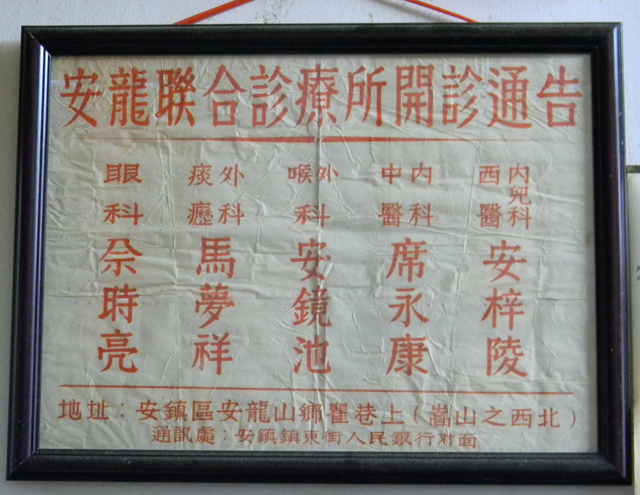 安龍聯合診療所開診通告
內兒科
西醫
安梓陵
內科
中醫
席永康
外喉科
安鏡池
外科
痰癧
馬夢祥
眼科
時亮
地址：安鎮區安龍山鄉瞿巷上（嵩山之西北）
通訊處：安鎮鎮東街人民銀行對面